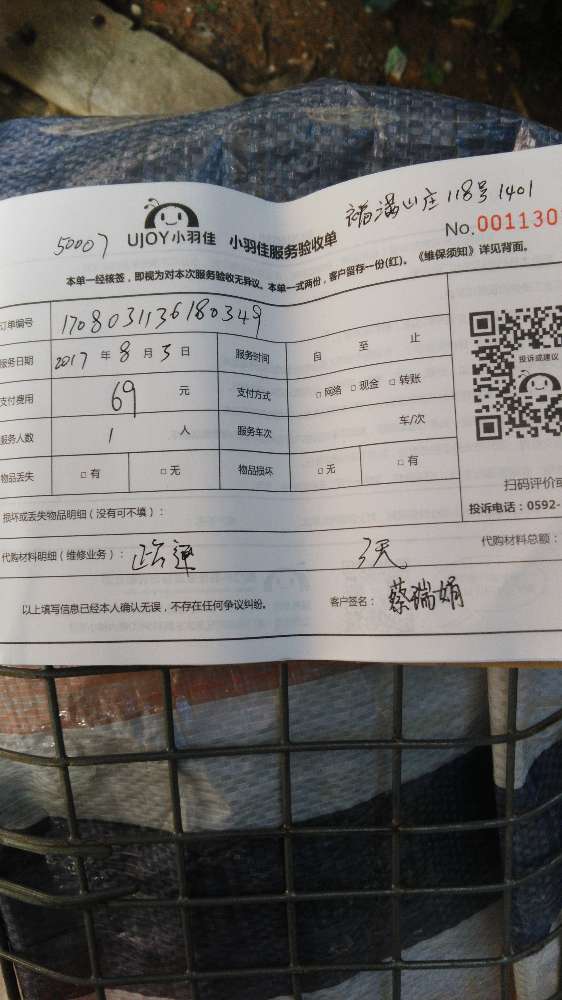 福满山庄118号1401
50007 UJOY小羽佳 小羽佳服务验收单 No.001130
本单一经核签，即视为对本次服务验收无异议。本单一式两份，客户留存一份(红)。《维保须知》详见背面。
订单编号 1708031136180349
服务日期 2017年8月3日 服务时间 自 至 止
支付费用 69元 支付方式 □网络 □现金 □转账
服务人数 1人 服务车次 车/次
物品丢失 □有 □无 物品损坏 □无 □有
投诉或建议
扫码评价或
投诉电话：0592-
损坏或丢失物品明细（没有可不填）：
代购材料明细（维修业务）： 疏通 3天 代购材料总额：
以上填写信息已经本人确认无误，不存在任何争议纠纷。 客户签名： 蔡瑞娟